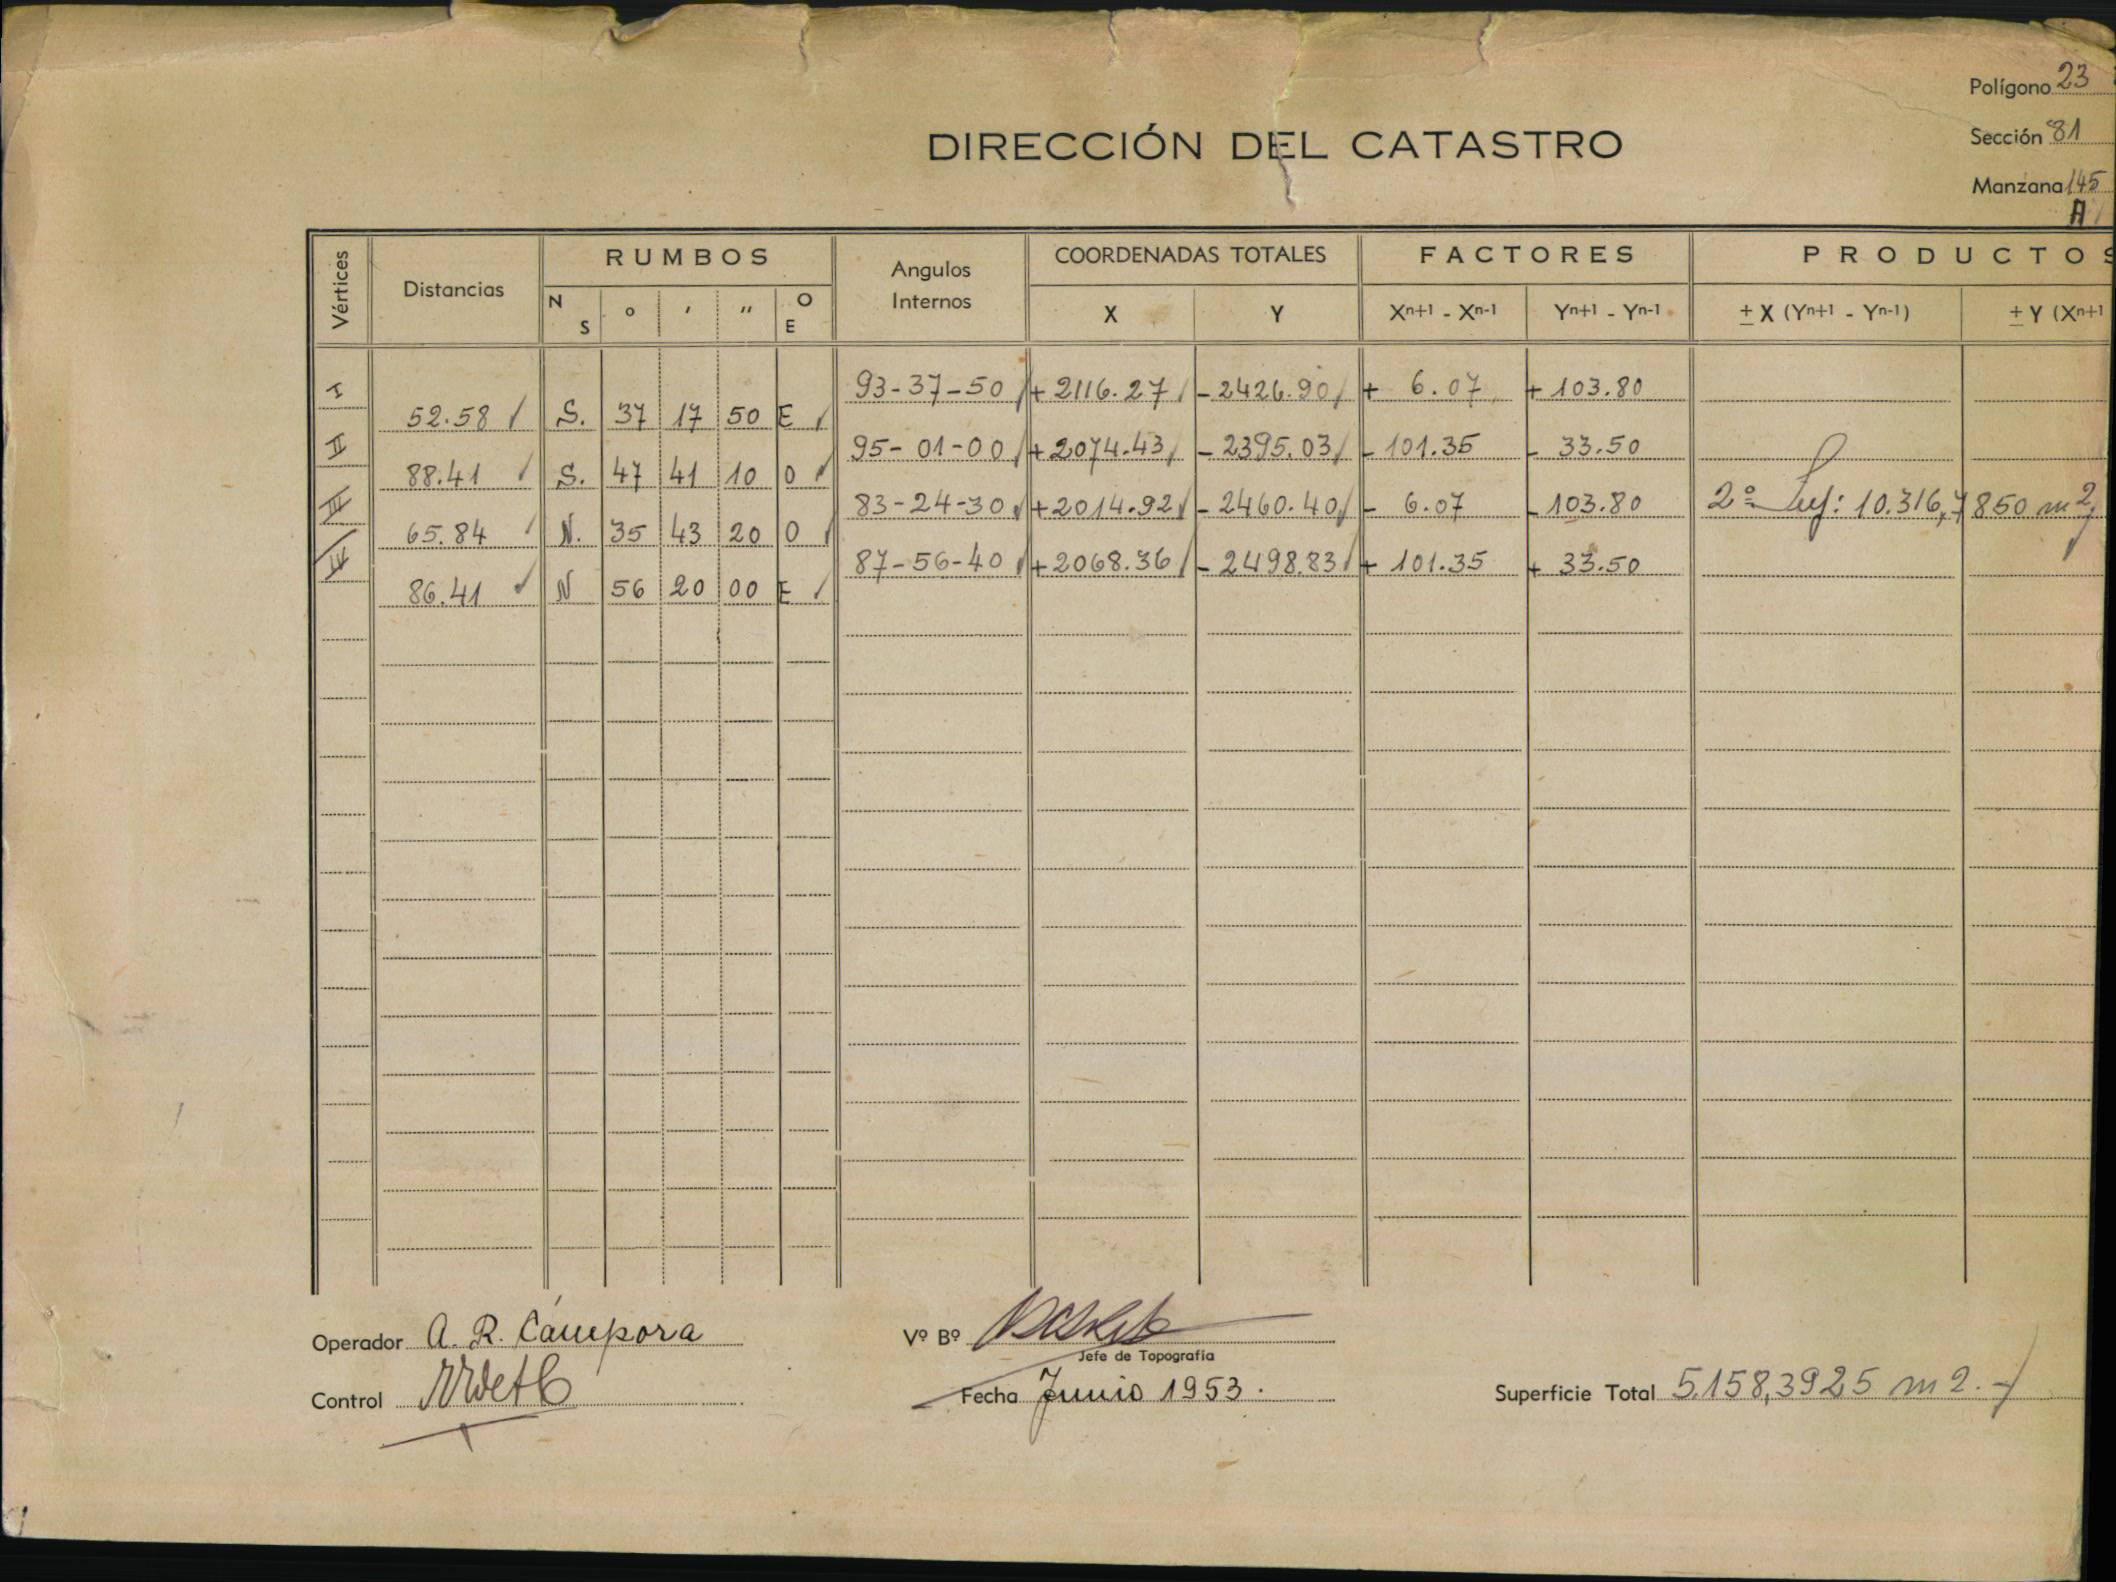 Polígono 23
DIRECCIÓN DEL CATASTRO
Sección 81
Manzana 145
A
Vértices Distancias RUMBOS Angulos Internos COORDENADAS TOTALES FACTORES PRODUCTOS
N S ° ' " O E X Y Xn+1 - Xn-1 Yn+1 - Yn-1 ± X (Yn+1 - Yn-1) ± Y (Xn+1
I 93-37-50 + 2116.27 - 2426.90 + 6.07 + 103.80
52.58 S. 37 17 50 E
II 95-01-00 + 2074.43 - 2395.03 - 101.35 - 33.50
88.41 S. 47 41 10 O
III 83-24-30 + 2014.92 - 2460.40 - 6.07 - 103.80 2º Sup: 10.316,7850 m2
65.84 N. 35 43 20 O
IV 87-56-40 + 2068.36 - 2498.83 + 101.35 + 33.50
86.41 N 56 20 00 E
Operador A. R. Cámpora Vº Bº
Jefe de Topografía
Control Fecha Junio 1953. Superficie Total 5.158,3925 m2.-